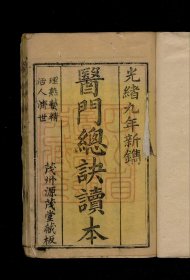 光緒九年新鐫
醫門總訣讀本
理熟藝精
活人濟世
茂州源茂堂藏板